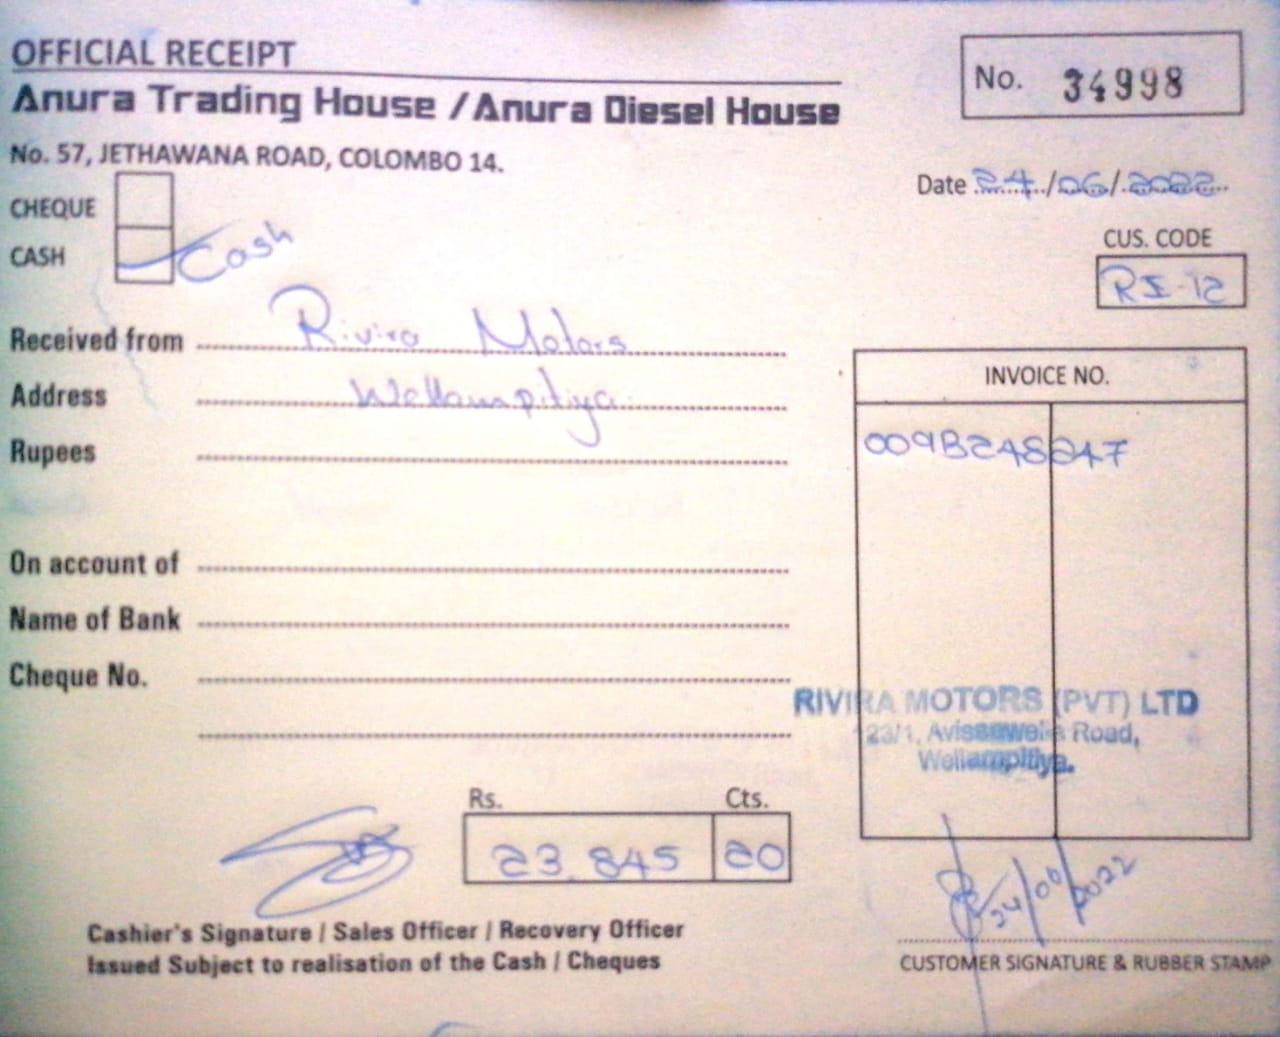 OFFICIAL RECEIPT
No. 34998
Anura Trading House / Anura Diesel House
No. 57, JETHAWANA ROAD, COLOMBO 14.
Date 24/06/2022
CHEQUE
CASH Cash
CUS. CODE
RI-12
Received from Rivira Motors
Address Wellampitiya
Rupees
INVOICE NO.
009B248247
On account of
Name of Bank
Cheque No.
RIVIRA MOTORS (PVT) LTD
23/1, Avissawella Road,
Wellampitiya.
Rs. Cts.
23.845 20
24/06/2022
Cashier's Signature / Sales Officer / Recovery Officer
Issued Subject to realisation of the Cash / Cheques
CUSTOMER SIGNATURE & RUBBER STAMP